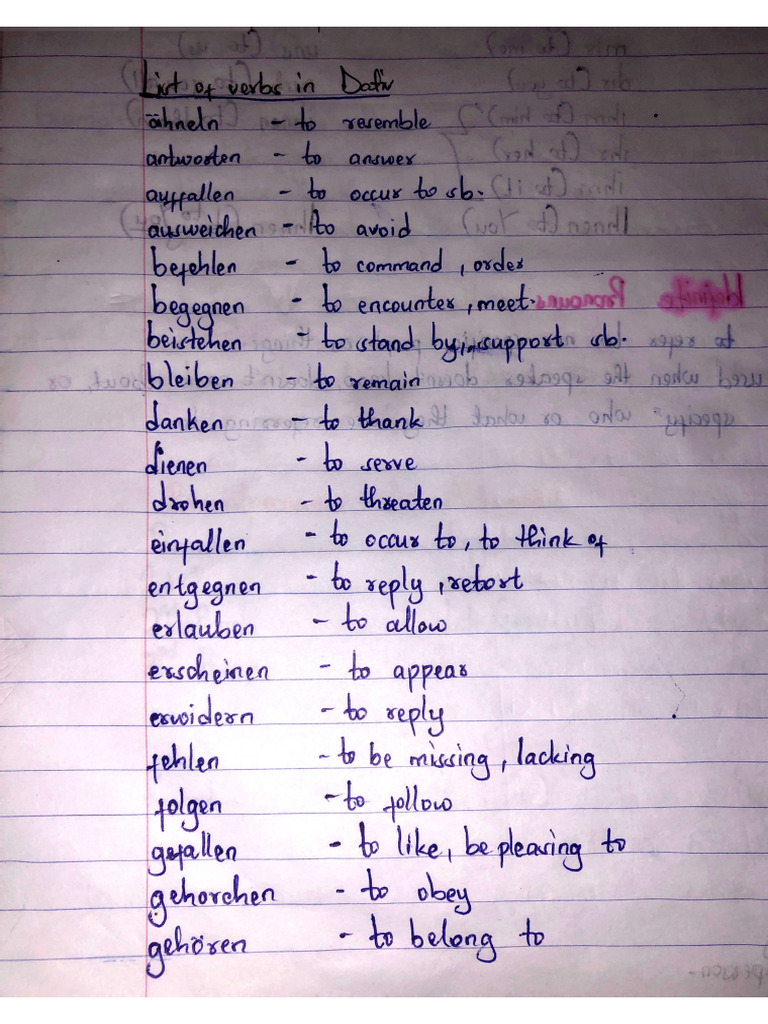 List of verbs in Dativ
ähneln - to resemble
antworten - to answer
auffallen - to occur to sb.
ausweichen - to avoid
befehlen - to command, order
begegnen - to encounter, meet.
beistehen - to stand by, support sb.
bleiben - to remain
danken - to thank
dienen - to serve
drohen - to threaten
einfallen - to occur to, to think of
entgegnen - to reply, retort
erlauben - to allow
erscheinen - to appear
erwidern - to reply
fehlen - to be missing, lacking
folgen - to follow
gefallen - to like, be pleasing to
gehorchen - to obey
gehören - to belong to